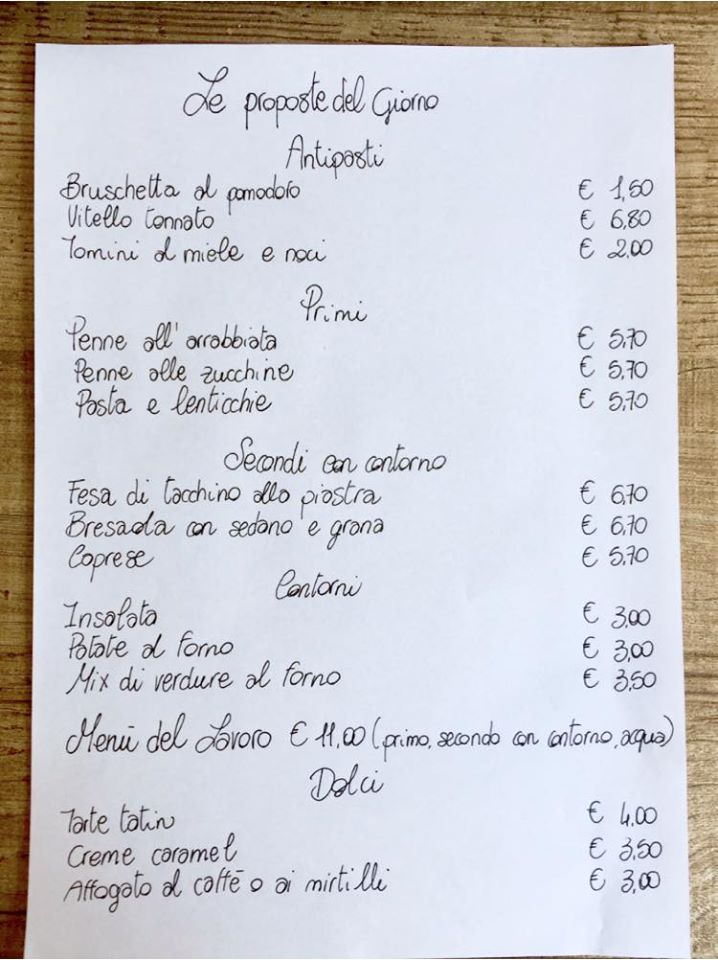 Le proposte del Giorno
Antipasti
Bruschetta al pomodoro € 1,50
Vitello tonnato € 6,80
Tomini al miele e noci € 2,00
Primi
Penne all'arrabbiata € 5,70
Penne alle zucchine € 5,70
Pasta e lenticchie € 5,70
Secondi con contorno
Fesa di tacchino alla piastra € 6,70
Bresaola con sedano e grana € 6,70
Caprese € 5,70
Contorni
Insalata € 3,00
Patate al forno € 3,00
Mix di verdure al forno € 3,50
Menù del Lavoro € 11,00 (primo, secondo con contorno, acqua)
Dolci
Tarte tatin € 4,00
Creme caramel € 3,50
Affogato al caffè o ai mirtilli € 3,00